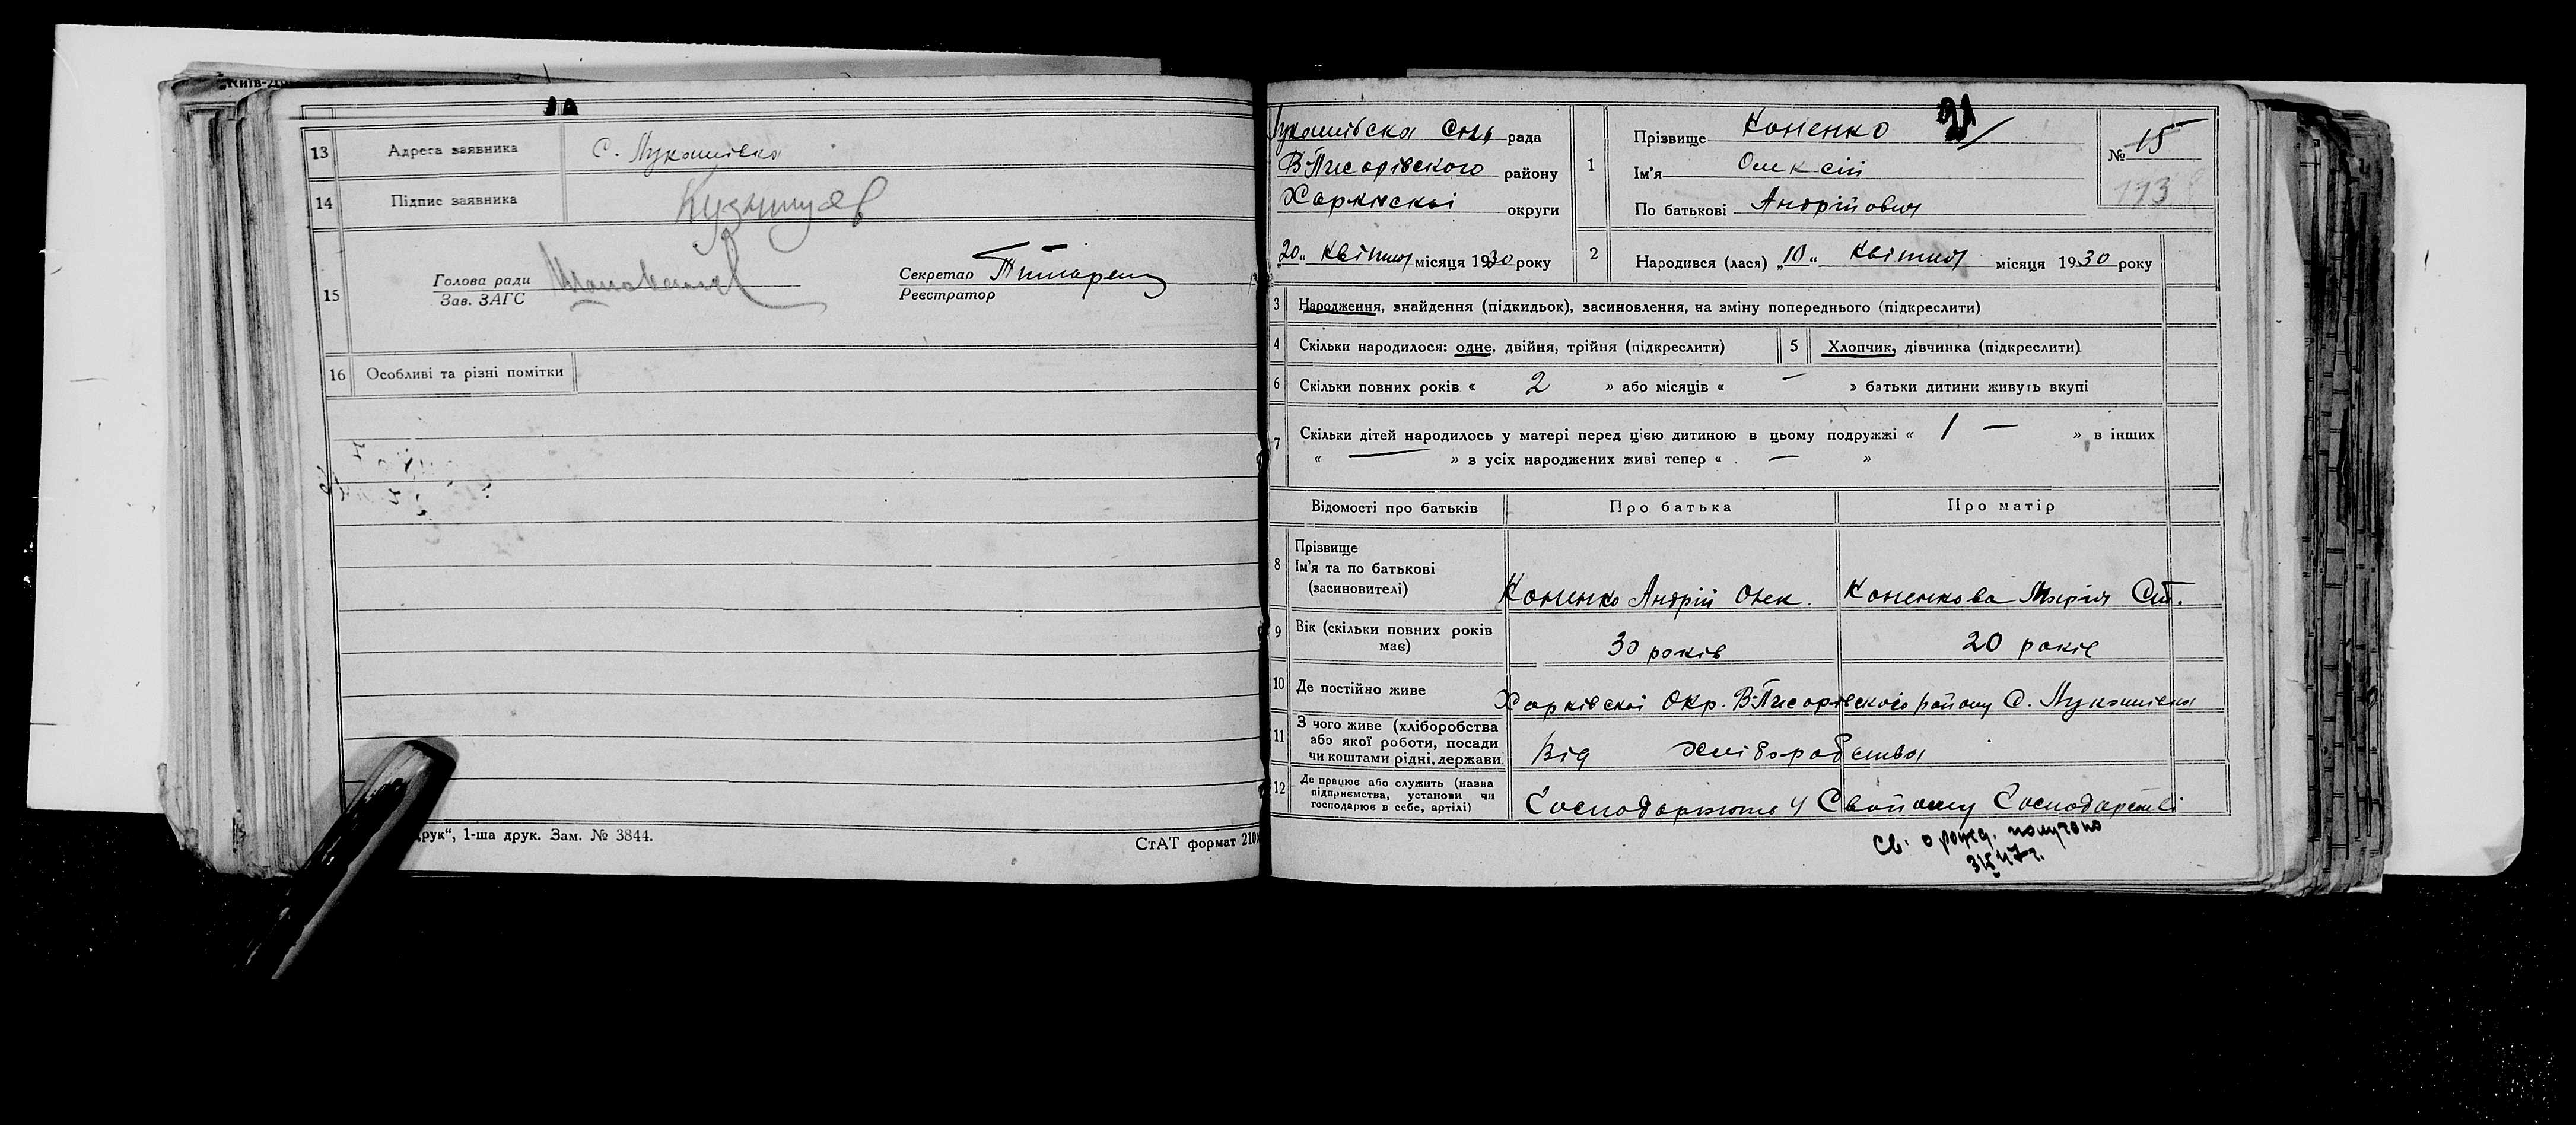 Київ-Д
13 Адреса заявника С. Лукашівка
14 Підпис заявника
15 Голова ради
Зав. ЗАГС
Секретар
Реєстратор
16 Особливі та різні помітки
друк“, 1-ша друк. Зам. № 3844.
СтАТ формат 210
21
Лукашівска Сіль рада
В-Писарівского району
Харківскоі округи
„20“ квітня місяця 1930 року
1 Прізвище Коненко
Ім’я Олексій
По батькові Андрійович
№ 15
113
2 Народився (лася) „10“ Квітня місяця 1930 року
3 Народження, знайдення (підкидьок), засиновлення, на зміну попереднього (підкреслити)
4 Скільки народилося: одне, двійня, трійня (підкреслити) 5 Хлопчик, дівчинка (підкреслити)
6 Скільки повних років « 2 » або місяців « — » батьки дитини живуть вкупі
7 Скільки дітей народилось у матері перед цією дитиною в цьому подружжі « 1 — » в інших
« — » з усіх народжених живі тепер « — »
Відомості про батьків Про батька Про матір
8 Прізвище
Ім’я та по батькові
(засиновителі) Коненко Андрій Олек. Коненкова Марія Ст.
9 Вік (скільки повних років
має) 30 років 20 років
10 Де постійно живе Харківскоі Окр. В-Писарівского району С. Лукашівка
11 З чого живе (хліборобства
або якої роботи, посади
чи коштами рідні, держави Від хліборобства
12 Де працює або служить (назва
підприємства, установи чи
господарює в себе, артілі) Господарюють у Своиому Господарстві
Св. о рожд. получено
47 г.